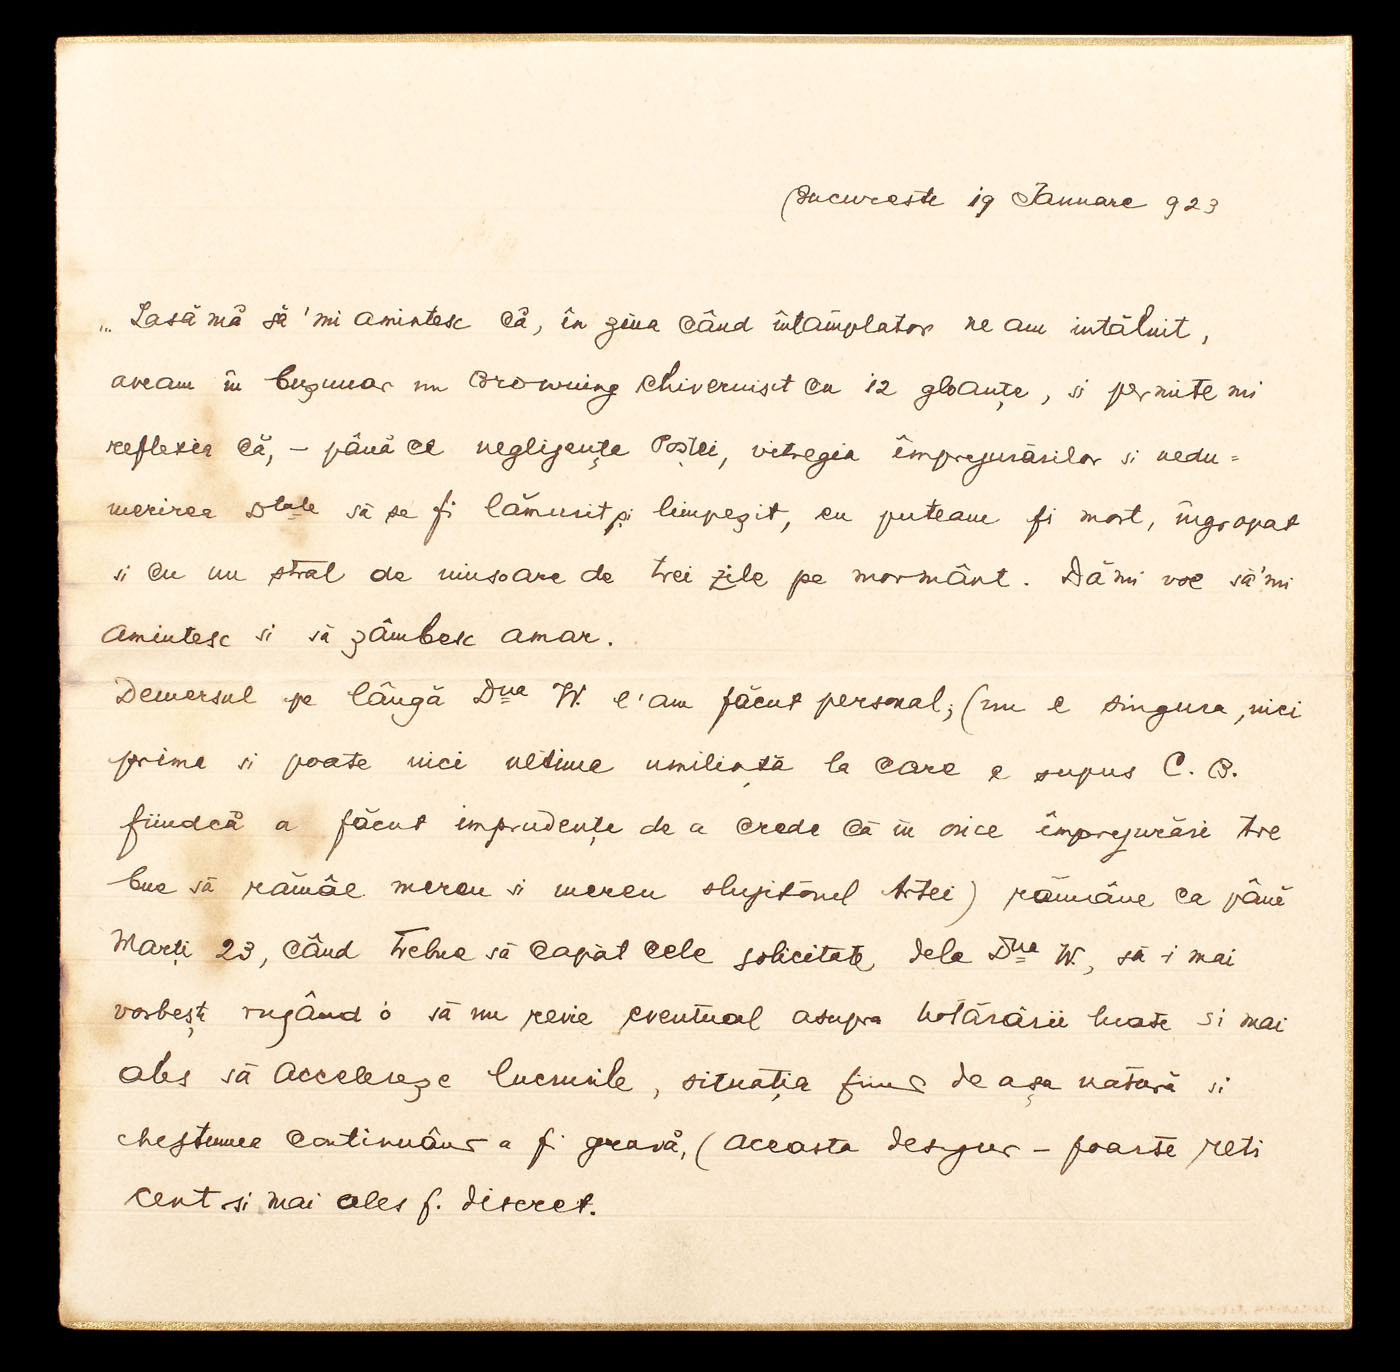 Bucureste 19 Ianuare 923
„ Lasă mă să 'mi amintesc că, în ziua când întâmplator ne am întâlnit,
aveam în buzunar un Browning chivernisit cu 12 gloanțe, si permite mi
reflexia că, – până ce negligența Poștei, vitregia împrejurărilor si nedu=
merirea Dtale să se fi lămurit și limpezit, eu puteam fi mort, îngropat
si cu un strat de ninsoare de trei zile pe mormânt. Dă mi voe să'mi
amintesc si să zâmbesc amar.
Demersul pe lângă Dna W. l'am făcut personal; (nu e singura, nici
prima si poate nici ultima umilință la care e supus C. B.
fiindcă a făcut imprudența de a crede că în orice împrejurări tre
bue să rămâe mereu si mereu slujitorul Artei) rămâne ca până
Marți 23, când trebue să capăt cele solicitate dela Dna W., să-i mai
vorbești rugând'o să nu revie eventual asupra hotărârii luate si mai
ales să accelereze lucrurile, situația fiind de așa natură si
chestiunea continuând a fi gravă, (aceasta desigur – foarte reti
cent si mai ales f. discret.